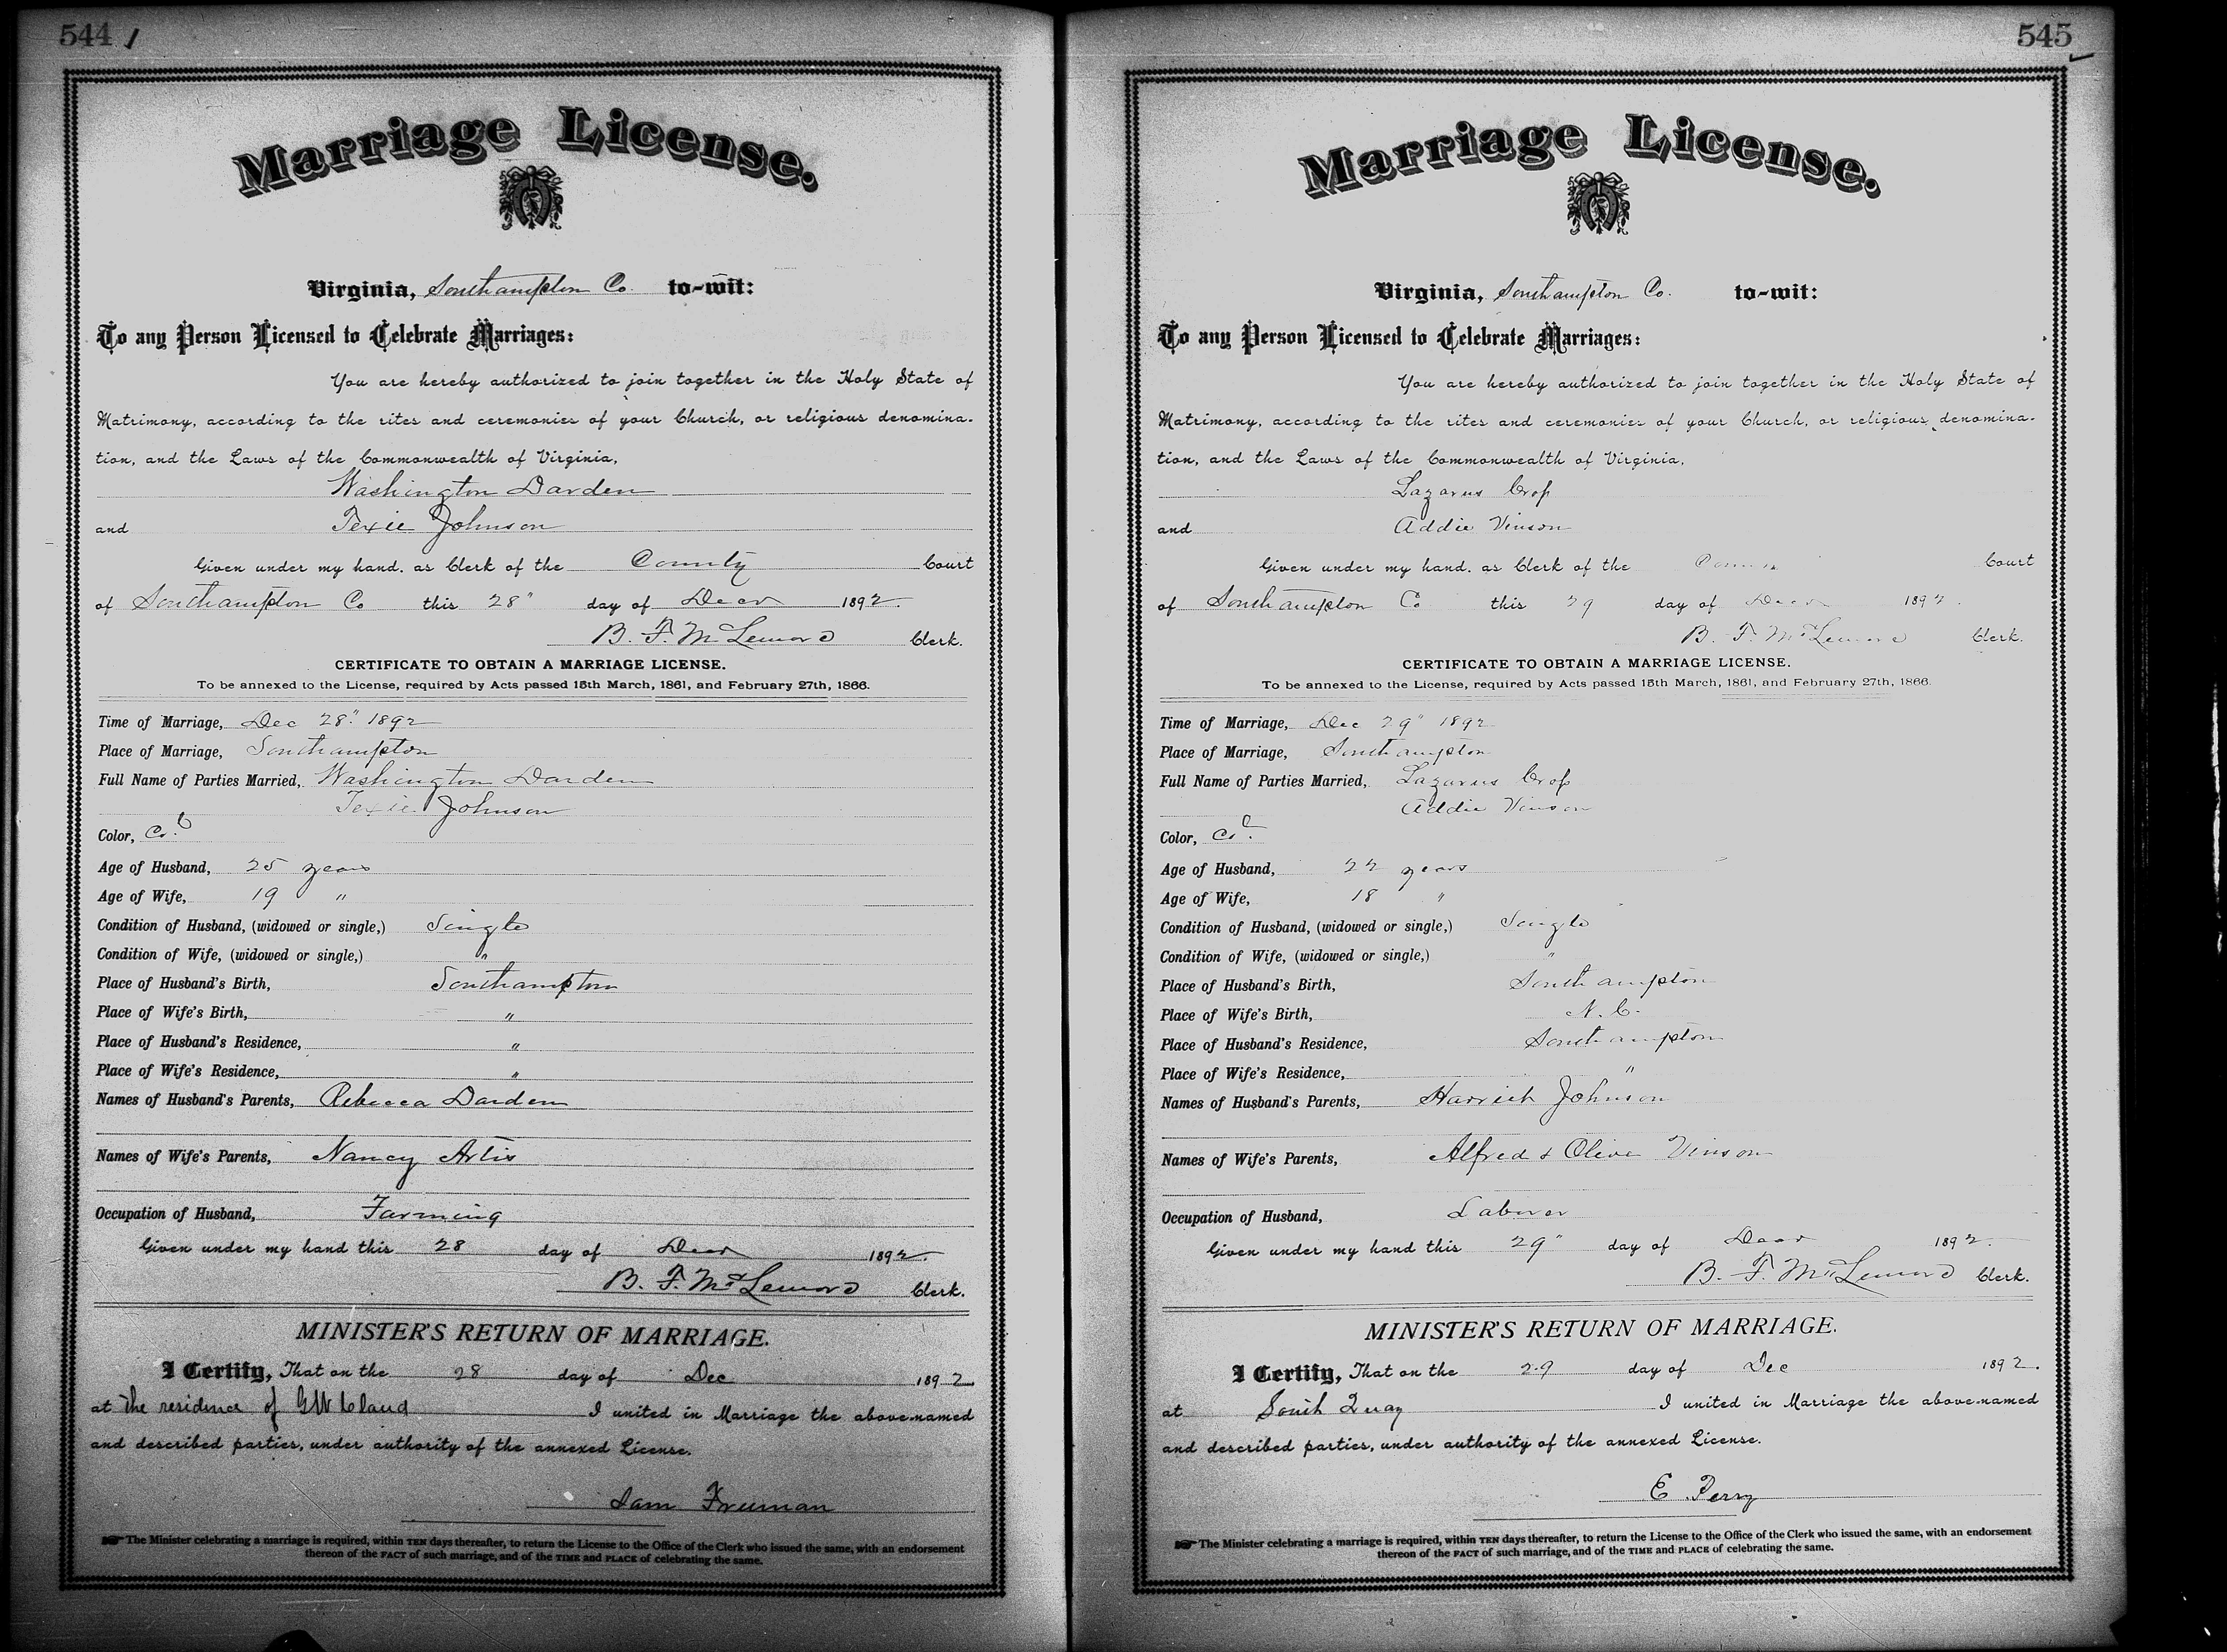 544
Marriage License.
Virginia, Southampton Co. to-wit:
To any Person Licensed to Celebrate Marriages:
You are hereby authorized to join together in the Holy State of
Matrimony, according to the rites and ceremonies of your Church, or religious denomina-
tion, and the Laws of the Commonwealth of Virginia,
Washington Darden
and Texie Johnson
Given under my hand, as Clerk of the County Court
of Southampton Co this 28" day of Decr 1892.
B. F. McLemore Clerk.
CERTIFICATE TO OBTAIN A MARRIAGE LICENSE.
To be annexed to the License, required by Acts passed 15th March, 1861, and February 27th, 1866.
Time of Marriage, Dec 28" 1892
Place of Marriage, Southampton
Full Name of Parties Married, Washington Darden
Texie Johnson
Color, Cold
Age of Husband, 25 years
Age of Wife, 19 "
Condition of Husband, (widowed or single,) Single
Condition of Wife, (widowed or single,) "
Place of Husband's Birth, Southampton
Place of Wife's Birth, "
Place of Husband's Residence, "
Place of Wife's Residence, "
Names of Husband's Parents, Rebecca Darden
Names of Wife's Parents, Nancy Artis
Occupation of Husband, Farming
Given under my hand this 28 day of Decr 1892.
B. F. McLemore Clerk.
MINISTER'S RETURN OF MARRIAGE.
I Certify, That on the 28 day of Dec 1892
at the residence of G W I united in Marriage the above-named
and described parties, under authority of the annexed License.
Sam Freeman
The Minister celebrating a marriage is required, within TEN days thereafter, to return the License to the Office of the Clerk who issued the same, with an endorsement
thereon of the FACT of such marriage, and of the TIME and PLACE of celebrating the same.
545
Marriage License.
Virginia, Southampton Co. to-wit:
To any Person Licensed to Celebrate Marriages:
You are hereby authorized to join together in the Holy State of
Matrimony, according to the rites and ceremonies of your Church, or religious denomina-
tion, and the Laws of the Commonwealth of Virginia,
Lazarus Crop
and Addie Vinson
Given under my hand, as Clerk of the County Court
of Southampton Co this 29 day of Decr 1892.
B. F. McLemore Clerk.
CERTIFICATE TO OBTAIN A MARRIAGE LICENSE.
To be annexed to the License, required by Acts passed 15th March, 1861, and February 27th, 1866.
Time of Marriage, Dec 29" 1892
Place of Marriage, Southampton
Full Name of Parties Married, Lazarus Crop
Addie Vinson
Color, Cold
Age of Husband, 22 years
Age of Wife, 18 "
Condition of Husband, (widowed or single,) Single
Condition of Wife, (widowed or single,) "
Place of Husband's Birth, Southampton
Place of Wife's Birth, N. C.
Place of Husband's Residence, Southampton
Place of Wife's Residence, "
Names of Husband's Parents, Harriet Johnson
Names of Wife's Parents, Alfred & Olive Vinson
Occupation of Husband, Laborer
Given under my hand this 29" day of Decr 1892.
B. F. McLemore Clerk.
MINISTER'S RETURN OF MARRIAGE.
I Certify, That on the 29 day of Dec 1892.
at South Quay I united in Marriage the above-named
and described parties, under authority of the annexed License.
E Perry
The Minister celebrating a marriage is required, within TEN days thereafter, to return the License to the Office of the Clerk who issued the same, with an endorsement
thereon of the FACT of such marriage, and of the TIME and PLACE of celebrating the same.